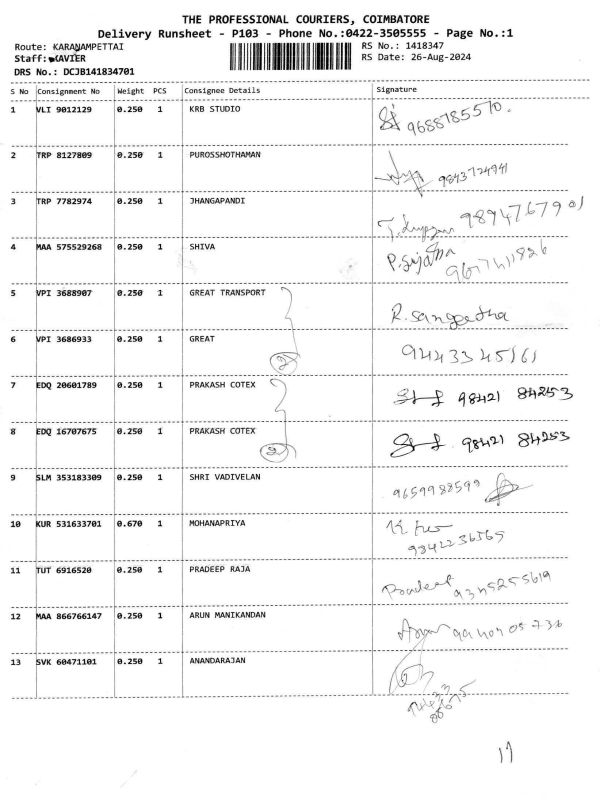 THE PROFESSIONAL COURIERS, COIMBATORE
Delivery Runsheet - P103 - Phone No.:0422-3505555 - Page No.:1
Route: KARANAMPETTAI RS No.: 1418347
Staff: XAVIER RS Date: 26-Aug-2024
DRS No.: DCJB141834701
S No Consignment No Weight PCS Consignee Details Signature
1 VLI 9012129 0.250 1 KRB STUDIO 9688785570.
2 TRP 8127809 0.250 1 PUROSSHOTHAMAN 9843724941
3 TRP 7782974 0.250 1 JHANGAPANDI 9894767901
4 MAA 575529268 0.250 1 SHIVA P. Sujatha
5 VPI 3688907 0.250 1 GREAT TRANSPORT R. Sangeetha
6 VPI 3686933 0.250 1 GREAT 2 9443345161
7 EDQ 20601789 0.250 1 PRAKASH COTEX 98421 84253
8 EDQ 16707675 0.250 1 PRAKASH COTEX 2 98421 84253
9 SLM 353183309 0.250 1 SHRI VADIVELAN 9659988599
10 KUR 531633701 0.670 1 MOHANAPRIYA
9842236565
11 TUT 6916520 0.250 1 PRADEEP RAJA Pradeep 9345255619
12 MAA 866766147 0.250 1 ARUN MANIKANDAN
13 SVK 60471101 0.250 1 ANANDARAJAN